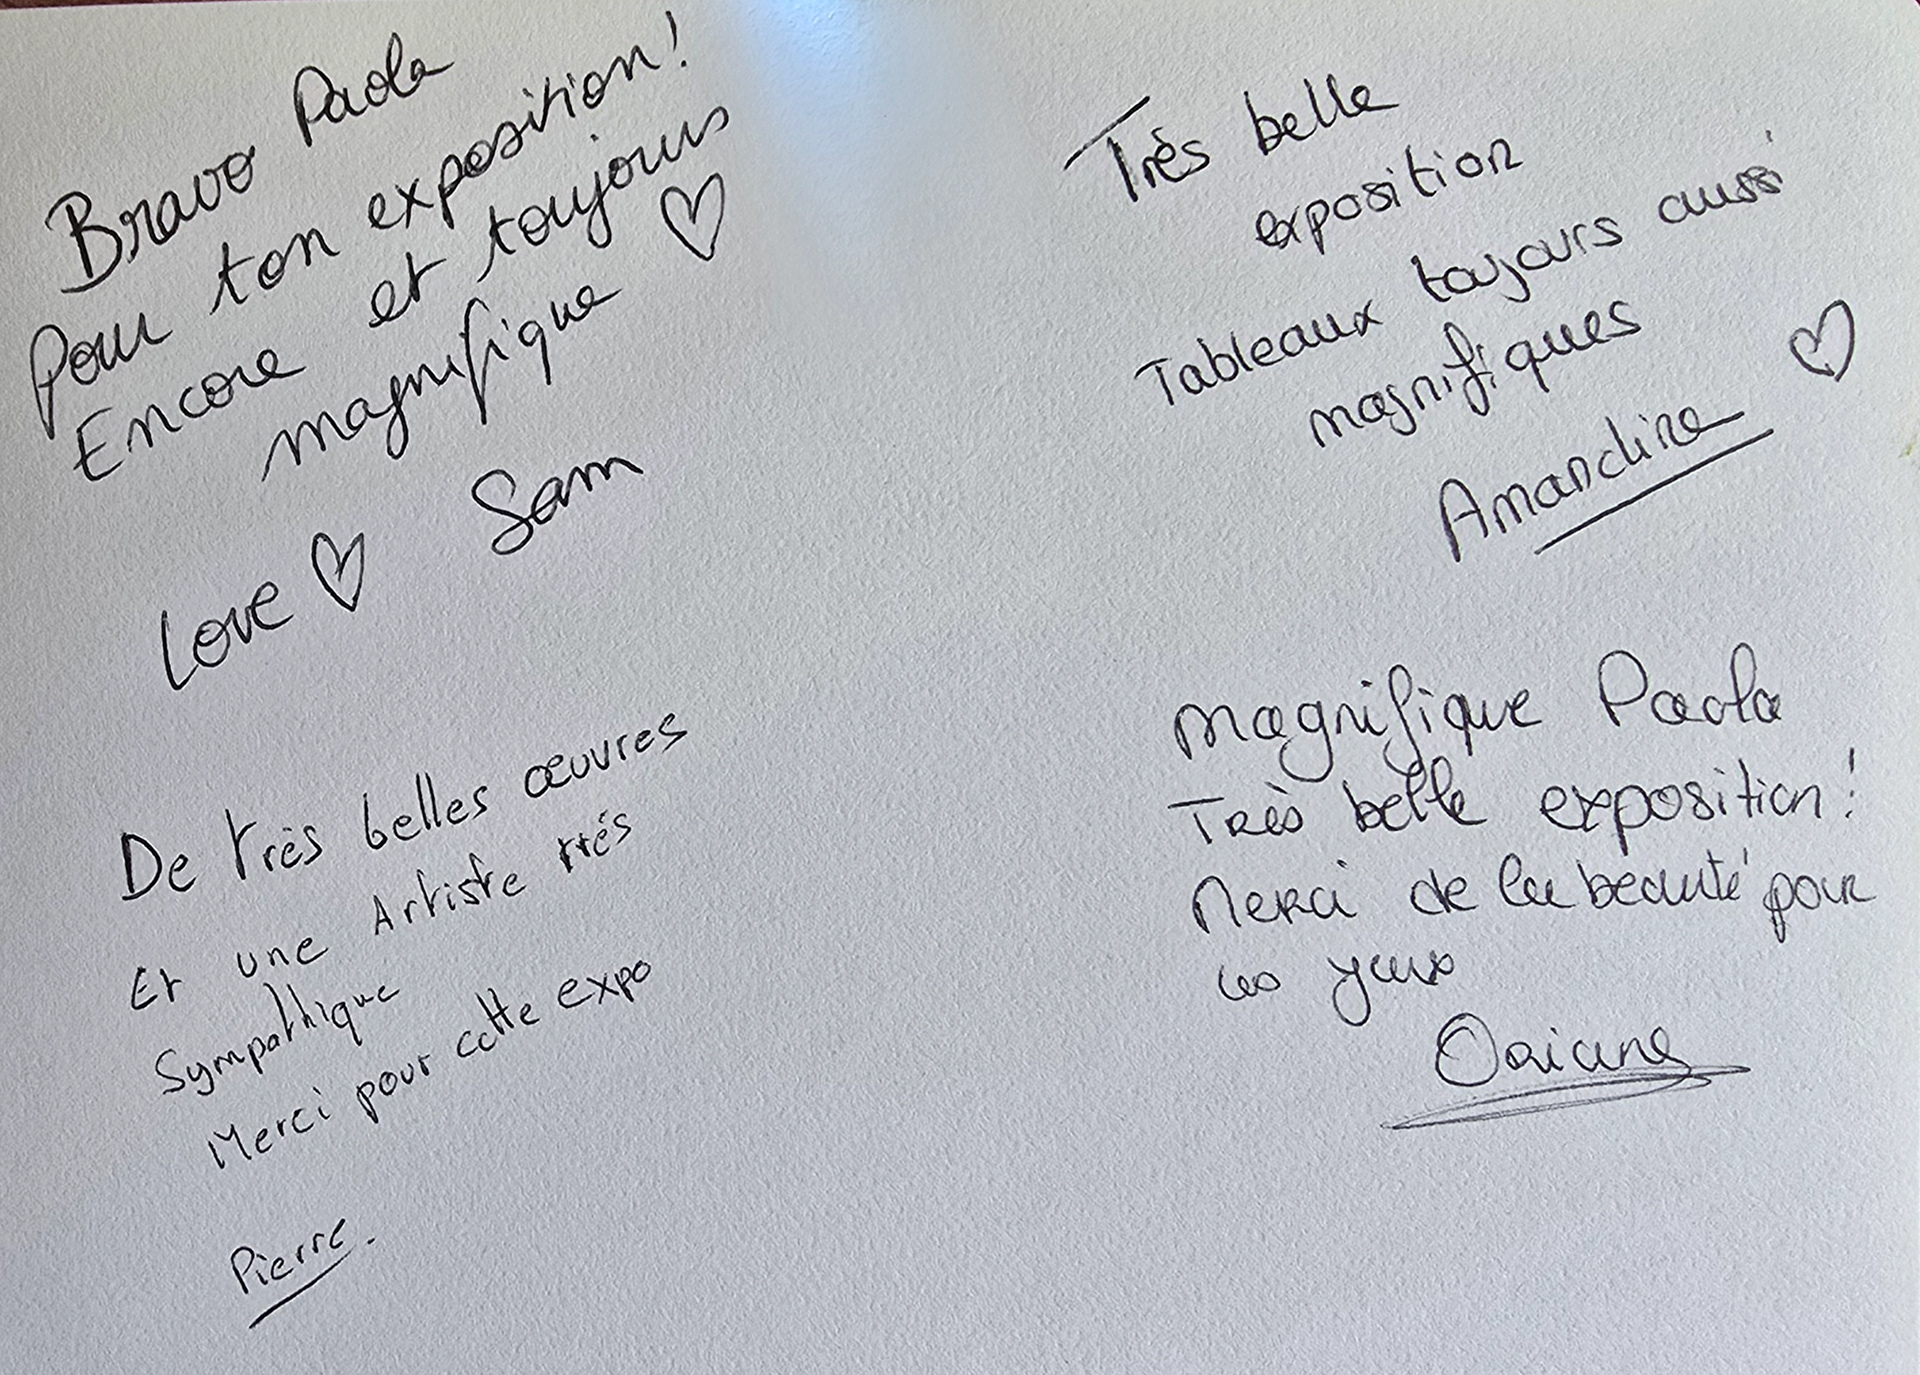 Bravo Paola
Pour ton exposition!
Encore et toujours
magnifique ♡
Love ♡ Sam
De très belles œuvres
Et une Artiste très
Sympathique
Merci pour cette expo
Pierre.
Très belle
exposition
Tableaux toujours aussi
magnifiques ♡
Amandine
Magnifique Paola
Très belle exposition!
Merci de la beauté pour
les yeux
Oriane